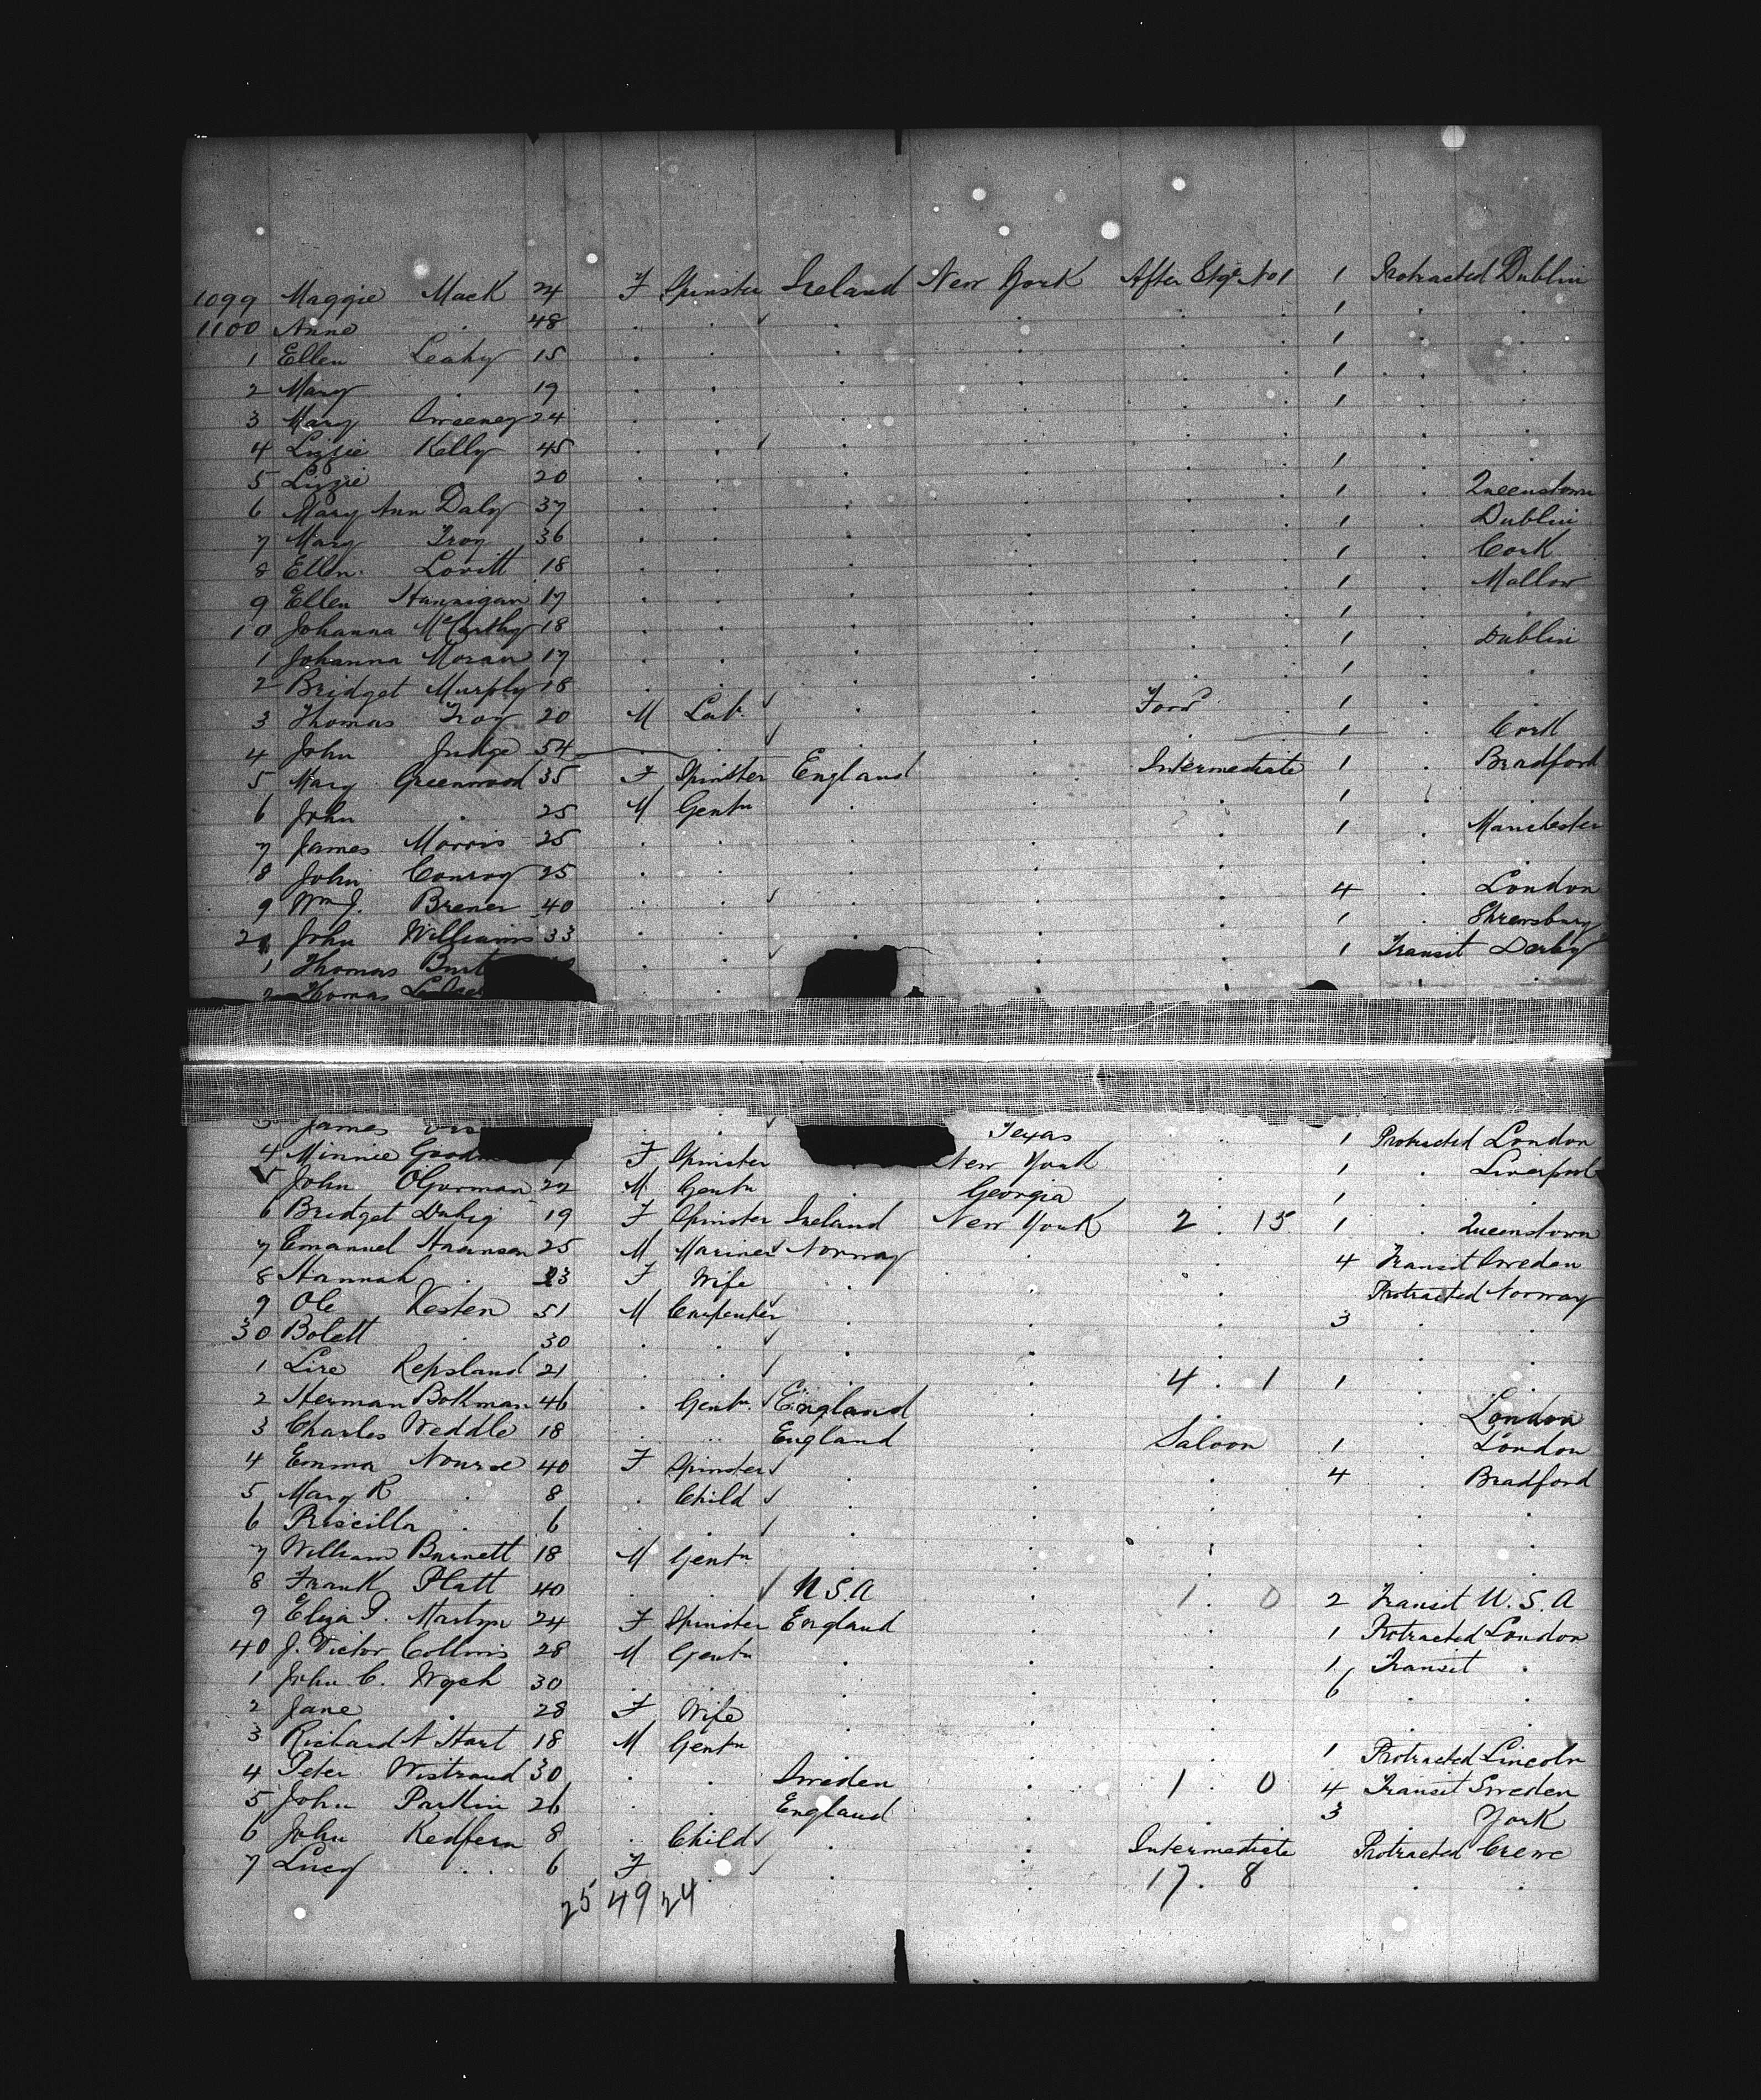 1099 Maggie Mack 24 F Spinster Ireland New York After Stge No 1 1 Protracted Dublin
1100 Anne . 48 . . . . . 1 . .
1 Ellen Leahy 15 . . . . . 1 . .
2 Mary . 19 . . . . . 1 . .
3 Mary Sweeney 24 . . . . . 1 . .
4 Lizzie Kelly 45 . . . . . . .
5 Lizzie . 20 . . . . . 1 . .
6 Mary Ann Daly 37 . . . . . 1 . Queenstown
7 Mary Troy 36 . . . . . 1 . Dublin
8 Ellen Lovitt 18 . . . . . 1 . Cork
9 Ellen Hannigan 17 . . . . . 1 . Mallow
10 Johanna McCarthy 18 . . . . . 1 . .
1 Johanna Moran 17 . . . . . 1 . Dublin
2 Bridget Murphy 18 . . . . . 1 . .
3 Thomas Troy 20 M Lab. . . Ford 1 . .
4 John Judge 54 . . . . 1 . Cork
5 Mary Greenwood 35 F Spinster England . Intermediate 1 . Bradford
6 John . 25 M Gentn . . . 1 . .
7 James Morris 25 . . . . . 1 . Manchester
8 John Conroy 25 . . . . . . .
9 Wm J. Brener 40 . . . . . 4 . London
2 John Williams 33 . . . . . 1 . Shrewsbury
1 Thomas . . . . . 1 Transit Derby
2 Thomas
3 James . . Texas . 1 Protracted London
4 Minnie F Spinster New York . 1 . Liverpool
5 John OGorman 22 M Gentn . Georgia . 1 .
6 Bridget Duhig 19 F Spinster Ireland New York 2 . 15 1 . Queenstown
7 Emanuel Aaronson 25 M Mariner Norway . . 4 Transit Sweden
8 Hannah . 23 F Wife . . . Protracted Norway
9 Ole Vesten 51 M Carpenter . . . 3 . .
30 Bolett . 30 . . . . . . .
1 Lire Repsland 21 . . . . 4 . 1 1 . .
2 Herman Bothman 46 . Gentn England . . . London
3 Charles Weddle 18 . .. England . Saloon 1 . London
4 Emma Nourse 40 F Spinster . . . 4 . Bradford
5 Mary R . 8 . Child . . . . .
6 Priscilla . 6 . . . . . . .
7 William Burnett 18 M Gentn . . . . .
8 Frank Platt 40 . . U.S.A . 1 . 0 2 Transit U.S.A
9 Eliza J. Martyn 24 F Spinster England . . 1 Protracted London
40 J. Victor Collins 28 M Gentn . . . 1 Transit .
1 John C. Wych 30 . . . . . 6 . .
2 Jane . 28 F Wife . . . . .
3 Richard A Hart 18 M Gentn . . . 1 Protracted Lincoln
4 Peter Wistrand 30 . . Sweden . 1 . 0 4 Transit Sweden
5 John Partlin 26 . . England . . 3 . York
6 John Redfern 8 . Child . . Intermediate Protracted Crewe
7 Lucy . 6 F . . . 17 . 8 . .
25 49 24